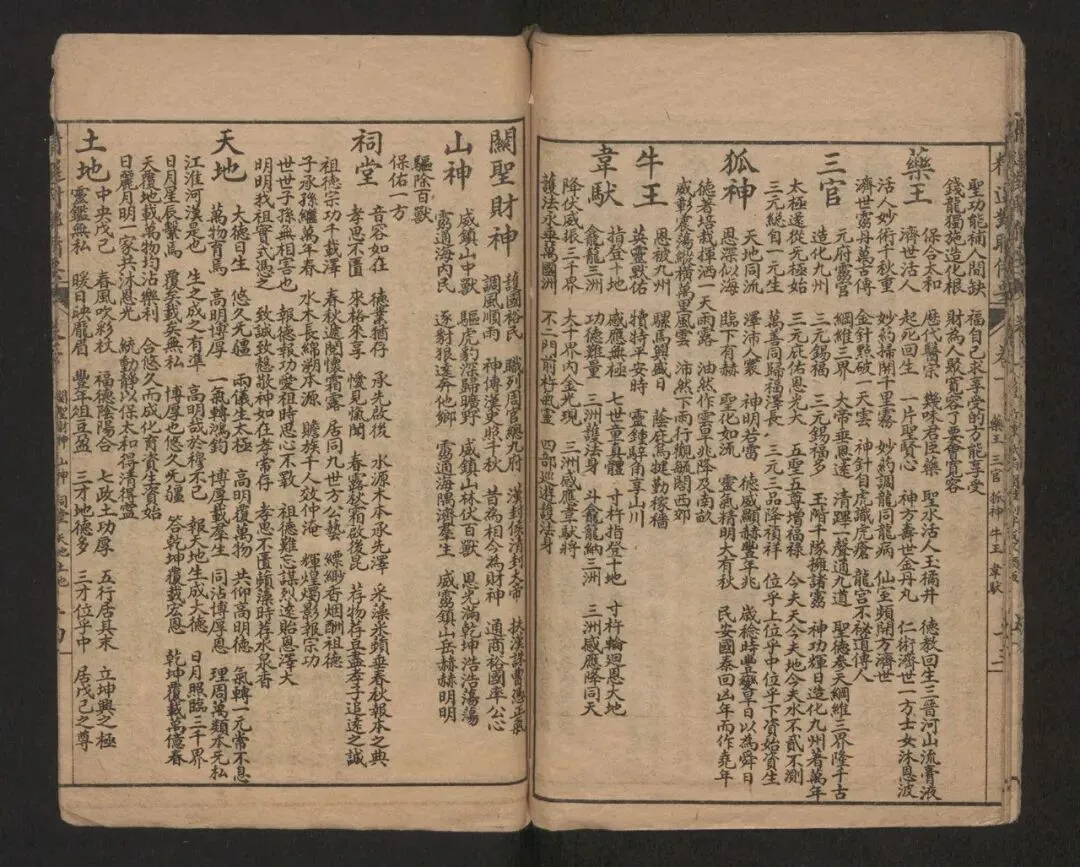 聖功能補人間缺　福自己求享受的方能享受
錢龍獨施造化根　財為人聚寬容了要會寬容
藥王　保合太和　歷代醫宗　幾味君臣藥　聖水活人玉橘井　德教回生三晉河山流膏液
濟世活人　起死回生　一片聖賢心　神方壽世金丹丸　仁術濟世一方士女沐恩波
活人妙術千秋重　妙約掃閑千里霧　妙約調龍同龍病　仙室頻開方濟世
濟世靈丹萬古傳　金針點破一天雲　神針自虎識虎瘡　龍宮不秘道傳人
三官　元府靈官　綱維三界　大帝垂恩遠　清蹕一聲通九道　聖德參天綱維三界隆千古
造化九州　三元錫福　三元錫福多　玉階千隊擁諸靈　神功輝日造化九州著萬年
太極遂從先極始　萬善同歸福澤長　五聖五尊增福祿　今夫天今夫地今夫水不貳不測
三元總自一元出　三元庇佑恩光大　三元三品降禎祥　位乎上位乎中位乎下資始資生
狐神　天地同流　澤沛人裏　神明若雷　德威顯赫豐年兆　歲稔時豐日以為舜日
恩深似海　臨下有赫　聖化如流　靈氣精明大有秋　民安國泰回凶年而作堯年
德著培栽揮洒一天雨露　油然作雲早兆降及南畝
威彰震蕩縱橫萬里風雲　沛然下雨行觀顒閑西郊
牛王　恩被九州　騾馬興盛日　蔭庇馬犍勤稼穡
英靈默佑　犢特平安時　靈鍾騂角享山川
韋馱　指登十地　感應無極　七世童真體　寸杵指登十地　寸杵輪迴恩大地
龕龍三洲　功德難量　三洲護法身　斗龕龍納三洲　三洲感應降同天
降伏威振三千界　大千界內金光現　三洲感應韋馱將
護法永垂萬國洲　不二門前杵氣靈　四部巡遊護法身
藥王　三官　狐神　牛王　韋馱
關聖財神　護國裕民　職列周官總九府　漢封候清封大帝　扶漢誅曹憑正氣
調風順雨　神傳漢史照千秋　昔為相今為財神　通商裕國率公心
山神　威鎮山中獸　驅虎豹深歸曠野　威鎮山林伏百獸　恩光滿乾坤浩浩蕩蕩
靈道海內民　逐豺狼遠奔他鄉　靈通海隅濟羣生　威靈鎮山岳赫赫明明
驅除百獸
保佑一方
祠堂　音容如在　德業猶存　承先啟後　水源木本承先澤　采藻采蘋垂春秋報本之典
孝思不匱　來格來享　優見愾聞　春露秋霜啟後昆　存物存豆盡孝子追遠之誠
祖德宗功千載澤　春秋遞閱懷霜露　居同九世方公藝　縹緲香烟酬祖德
子承孫繼萬年春　水木長綿朔本源　贍族千人效仲淹　輝煌燭影報宗功
世世子孫無相害也　報德報功愛祖時思心不斁　祖德難忘謀烈遠貽恩澤大
明明我祖實式憑之　致誠致愨敬神如在孝常存　孝思不匱蘋藻時荐水泉香
天地　大德日生　悠久无疆　兩儀生太極　高明覆萬物　共仰高明德　氣轉一元常不息
萬物育焉　高明博厚　一氣轉鴻鈞　博厚載羣生　同沾博厚恩　理周萬類本元私
江淮河漢是也　生之成之有準　高明哉於穆不已　報天地生成大德　日月照臨三千界
日月星辰繫焉　覆矣載矣無私　博厚也悠久无疆　答乾坤覆載宏恩　乾坤覆載萬億春
天覆地載萬物均沾樂利　合悠久而成化育資生資始
日麗月明一家共沐恩光　統動靜以保太和得清得寧
土地　中央戊己　春風吹彩杖　福德陰陽合　七政土功厚　五行居其末　立坤輿之極
靈鑑無私　暖日映龐眉　豐年俎豆盈　三才地德多　三才位乎中　居戊己之尊
關聖財神　山神　祠堂　天地　土地